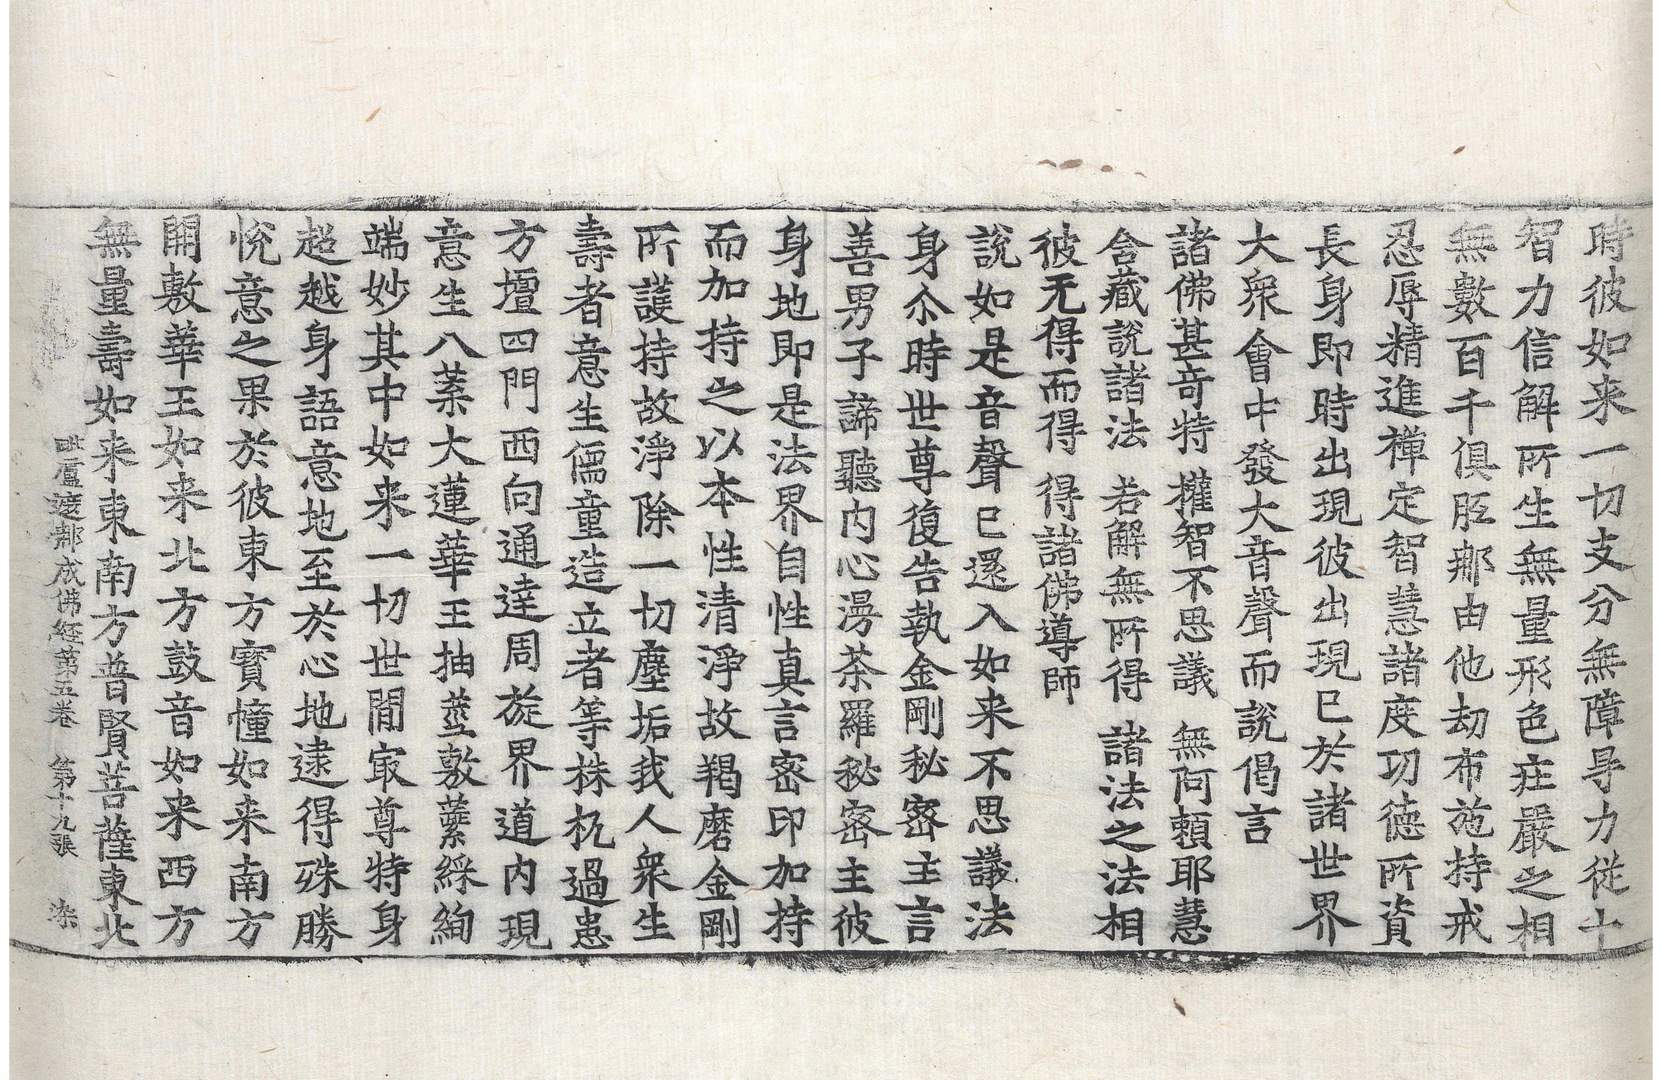 時彼如来一切支分無障㝵力從十
智力信解所生無量形色庄嚴之相
無數百千俱胝那由他劫布施持戒
忍辱精進禪定智慧諸度功德所資
長身即時出現彼出現已於諸世界
大衆會中發大音聲而說偈言
諸佛甚奇特 權智不思議 無阿頼耶慧
含藏說諸法 若解無所得 諸法之法相
彼无得而得 得諸佛導師
說如是音聲已還入如来不思議法
身尒時世尊復告執金剛秘密主言
善男子諦聽内心漫茶羅秘密主彼
身地即是法界自性真言密印加持
而加持之以本性清淨故羯磨金剛
所護持故淨除一切塵垢我人衆生
壽者意生儒童造立者等株杌過患
方壇四門西向通達周旋界道内現
意生八葉大蓮華王抽莖敷蘂綵絢
端妙其中如来一切世間㝡尊特身
超越身語意地至於心地逮得殊勝
悅意之果於彼東方寶幢如来南方
開敷華王如来北方鼓音如来西方
無量壽如来東南方普賢菩薩東北
毗盧遮那成佛經第五卷 第十九張 柒